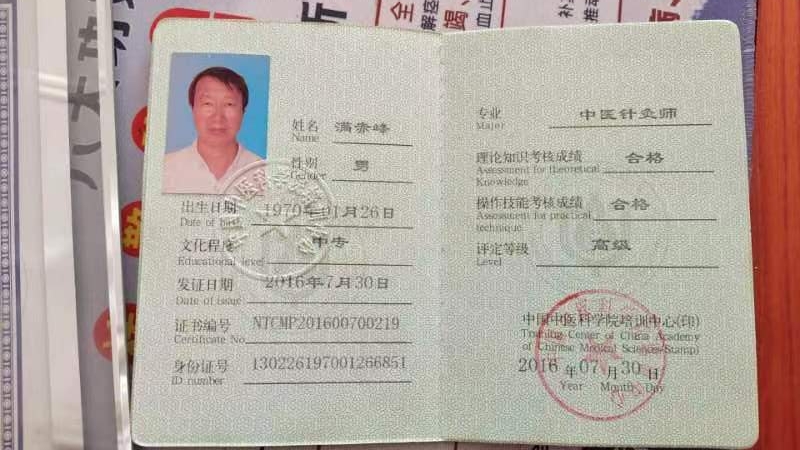 八大功
全
解痉
止
姓名 满赤峰
Name
性别 男
Gender
出生日期 1970年01月26日
Date of birth
文化程度 中专
Educational level
发证日期 2016年7月30日
Date of issue
证书编号 NTCMP201600700219
Certificate No.
身份证号 130226197001266851
ID number
专业 中医针灸师
Major
理论知识考核成绩 合格
Assessment for theoretical
Knowledge
操作技能考核成绩 合格
Assessment for practical
technique
评定等级 高级
Level
中国中医科学院培训中心(印)
Training Center of China Academy
of Chinese Medical Sciences(Stamp)
2016 年 07 月 30 日
Year Month Day